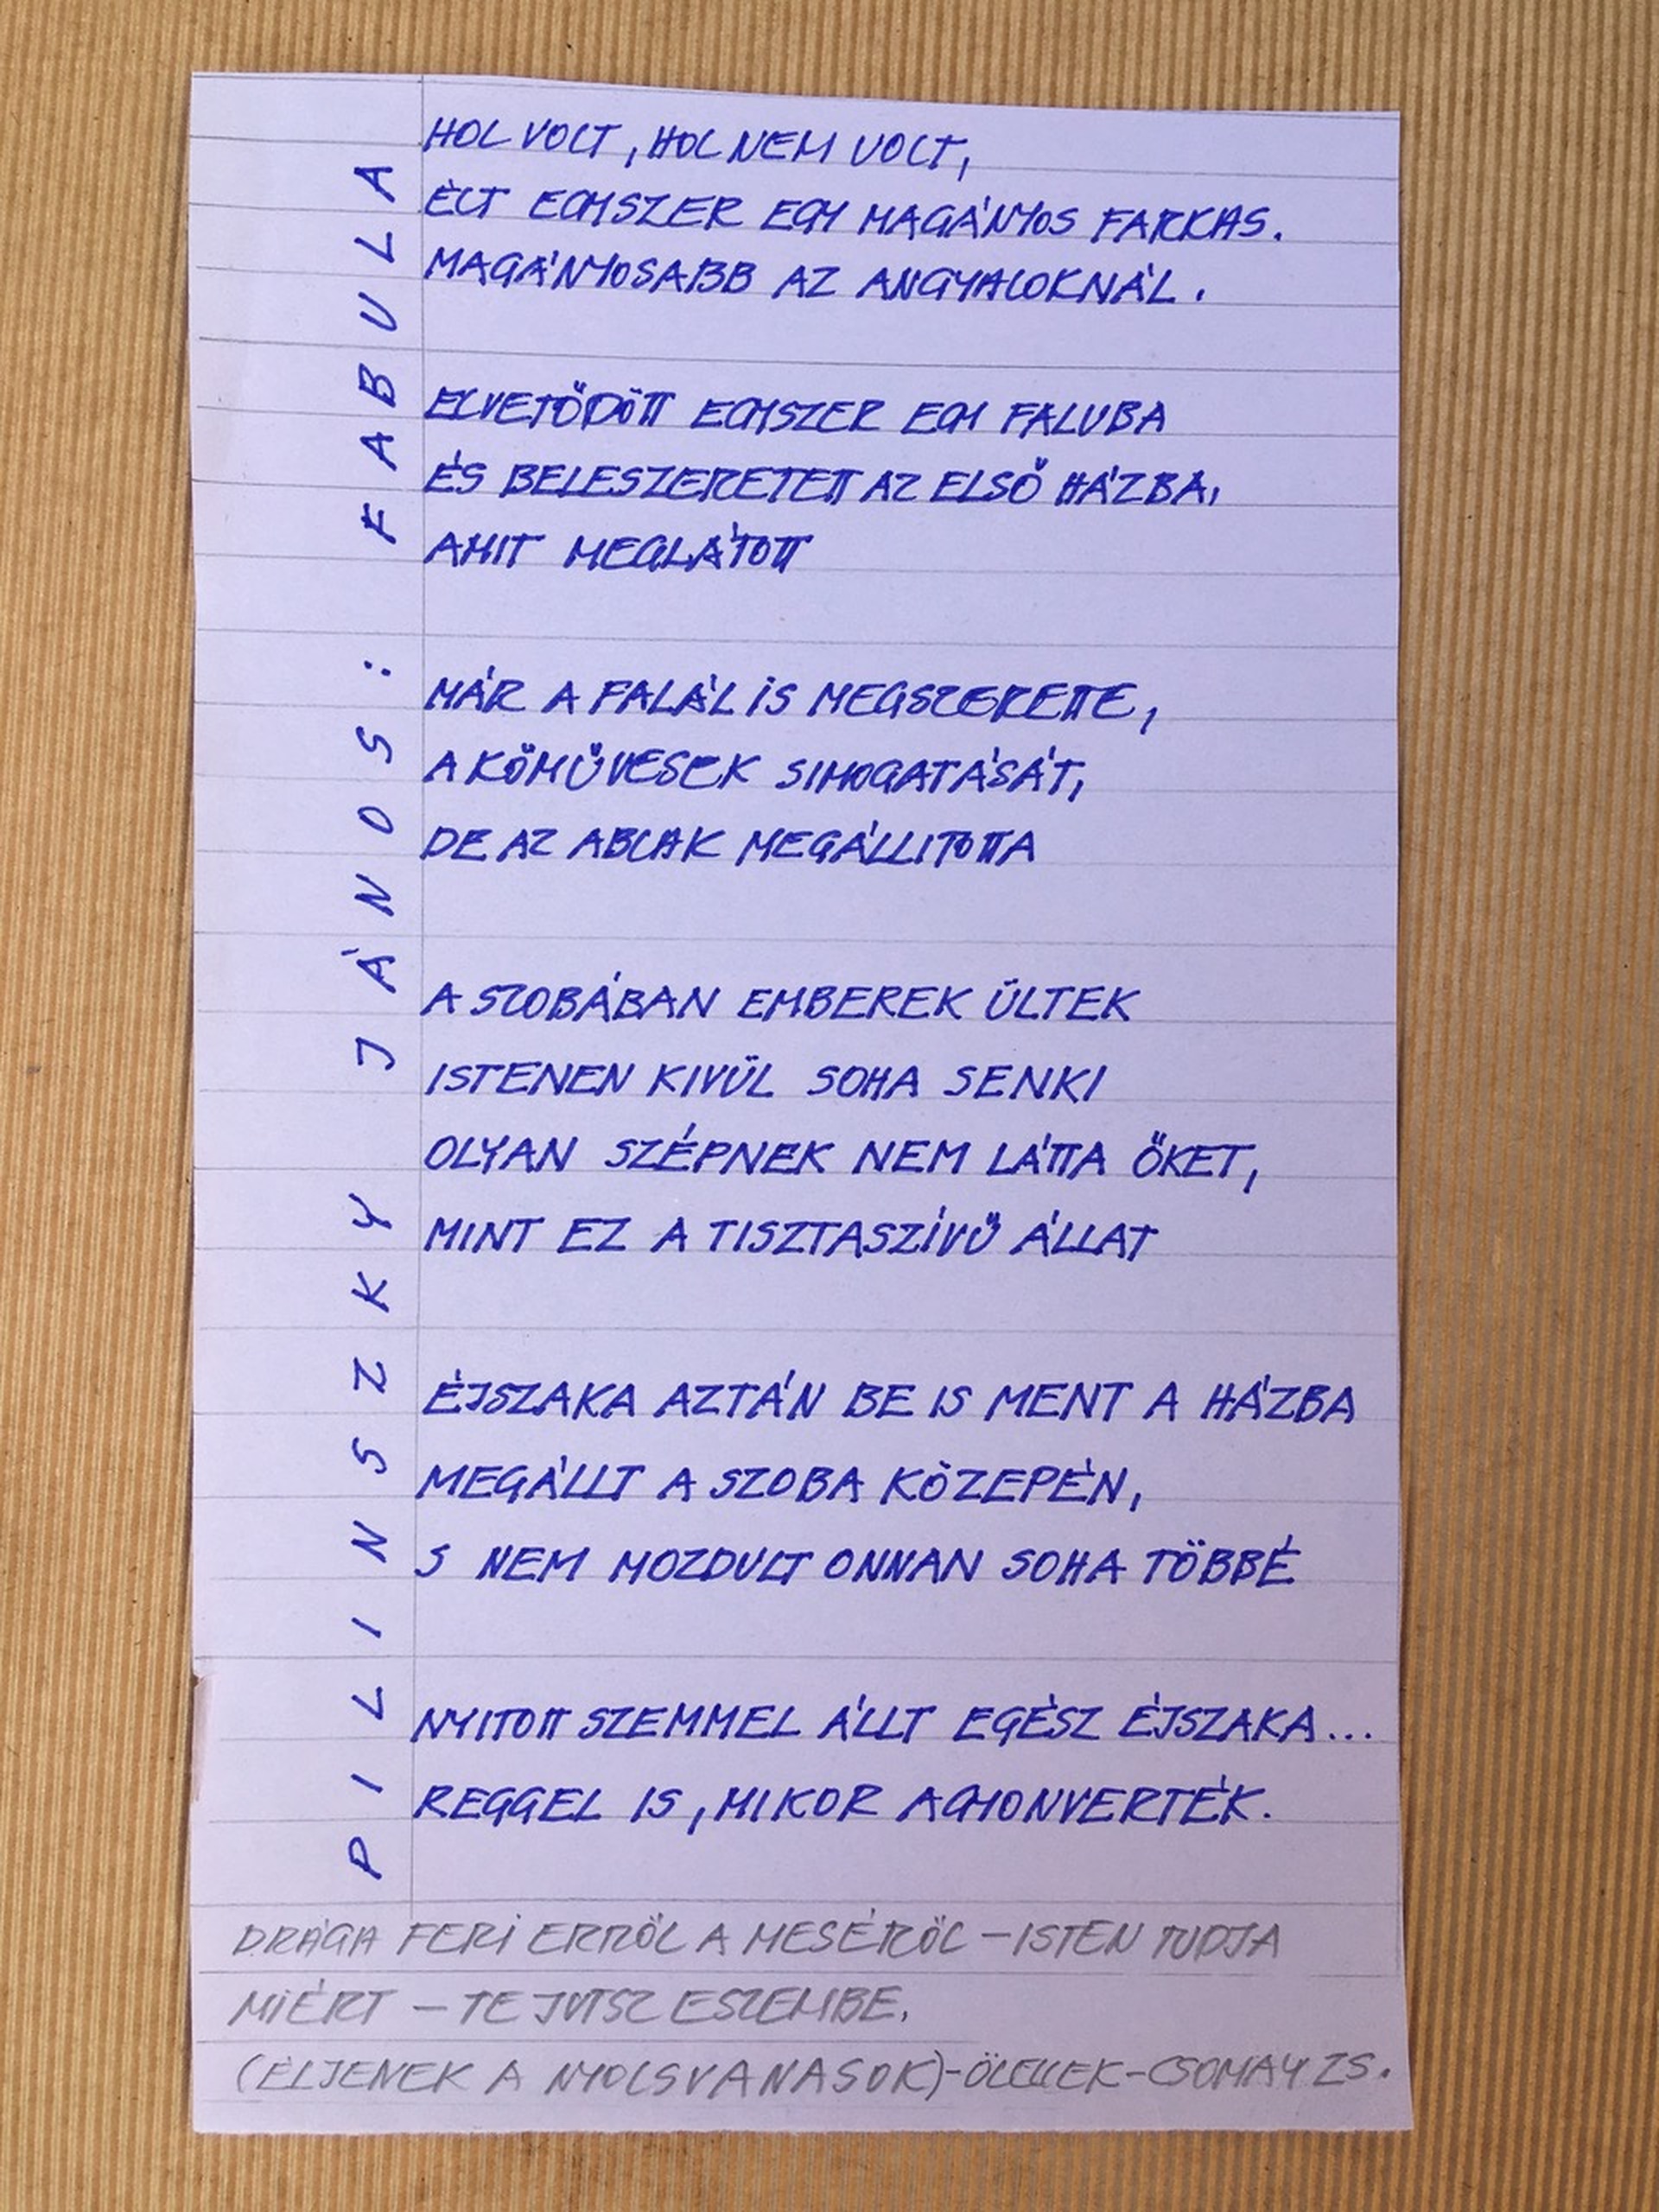 PILINSZKY JÁNOS: FABULA
HOL VOLT, HOL NEM VOLT,
ÉLT EGYSZER EGY MAGÁNYOS FARKAS.
MAGÁNYOSABB AZ ANGYALOKNÁL.
ELVETŐDÖTT EGYSZER EGY FALUBA
ÉS BELESZERETETT AZ ELSŐ HÁZBA,
AMIT MEGLÁTOTT
MÁR A FALÁL IS MEGSZERETTE,
A KŐMŰVESEK SIMOGATÁSÁT,
DE AZ ABLAK MEGÁLLITOTTA
A SZOBÁBAN EMBEREK ÜLTEK
ISTENEN KIVÜL SOHA SENKI
OLYAN SZÉPNEK NEM LÁTTA ŐKET,
MINT EZ A TISZTASZÍVŰ ÁLLAT
ÉJSZAKA AZTÁN BE IS MENT A HÁZBA
MEGÁLLT A SZOBA KÖZEPÉN,
S NEM MOZDULT ONNAN SOHA TÖBBÉ
NYITOTT SZEMMEL ÁLLT EGÉSZ ÉJSZAKA...
REGGEL IS, MIKOR AGYONVERTÉK.
DRÁGA FERI ERRŐL A MESÉRŐL – ISTEN TUDJA
MIÉRT – TE JUTSZ ESZEMBE.
(ÉLJENEK A NYOLSVANASOK)-ÖLELLEK-CSOMAY ZS.